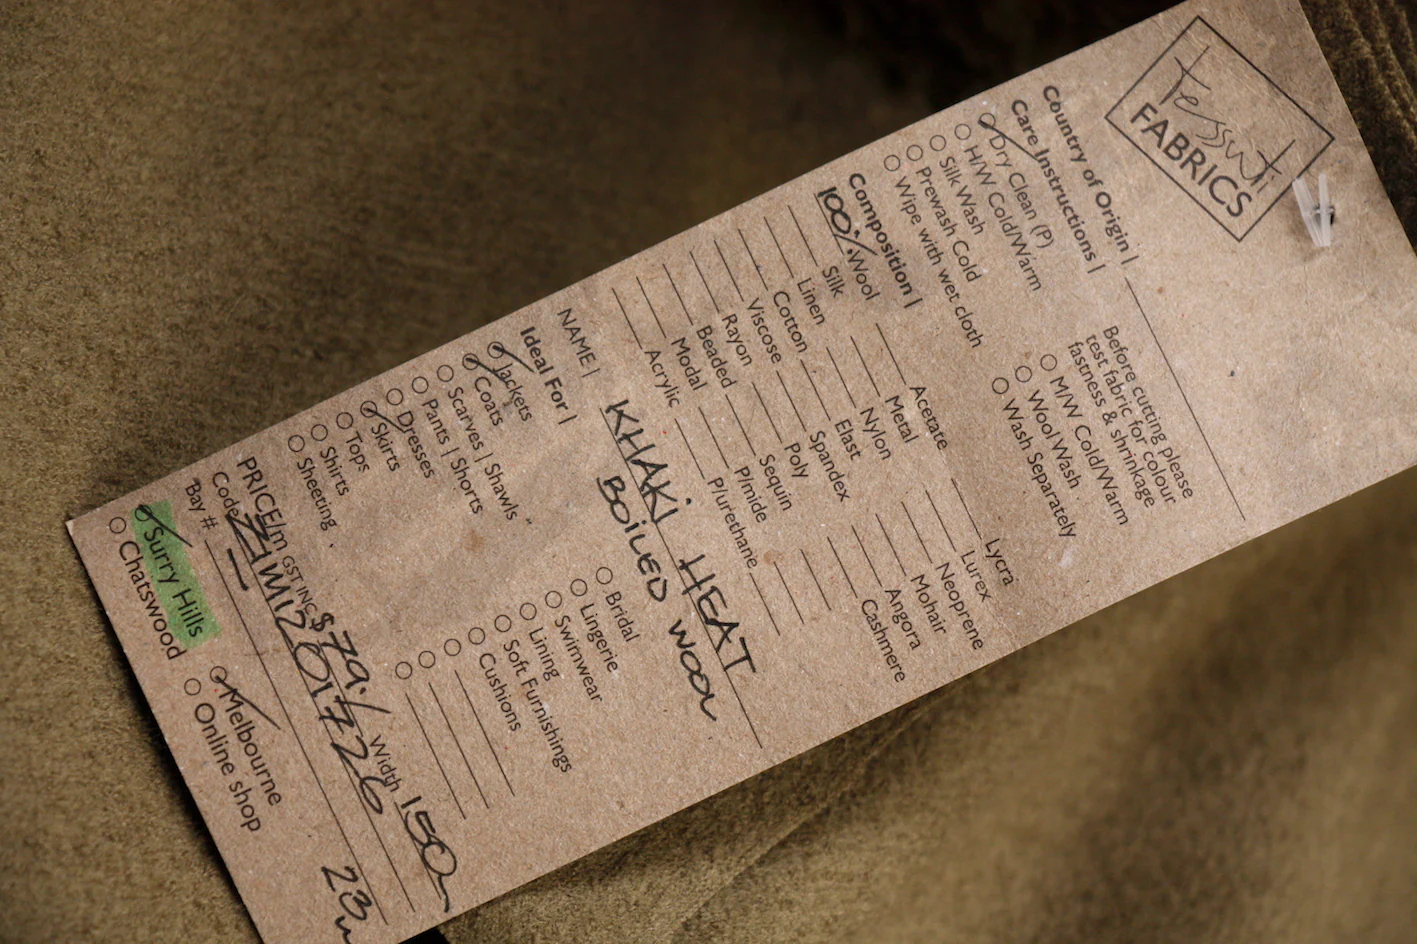 tessuti
FABRICS
Country of Origin |
Care Instructions |
Dry Clean (P)
H/W Cold/Warm
Silk Wash
Prewash Cold
Wipe with wet cloth
Before cutting please
test fabric for colour
fastness & shrinkage
M/W Cold/Warm
Wool Wash
Wash Separately
Composition |
100% Wool
Silk
Linen
Cotton
Viscose
Rayon
Beaded
Modal
Acrylic
Acetate
Metal
Nylon
Elast
Spandex
Poly
Sequin
P/mide
P/urethane
Lycra
Lurex
Neoprene
Mohair
Angora
Cashmere
NAME | KHAKI HEAT
BOILED WOOL
Ideal For |
Jackets
Coats
Scarves | Shawls
Pants | Shorts
Dresses
Skirts
Tops
Shirts
Sheeting
Bridal
Lingerie
Swimwear
Lining
Soft Furnishings
Cushions
PRICE/m GST INC $79./ Width 150
Code
Bay #
Surry Hills
Chatswood
Melbourne
Online shop